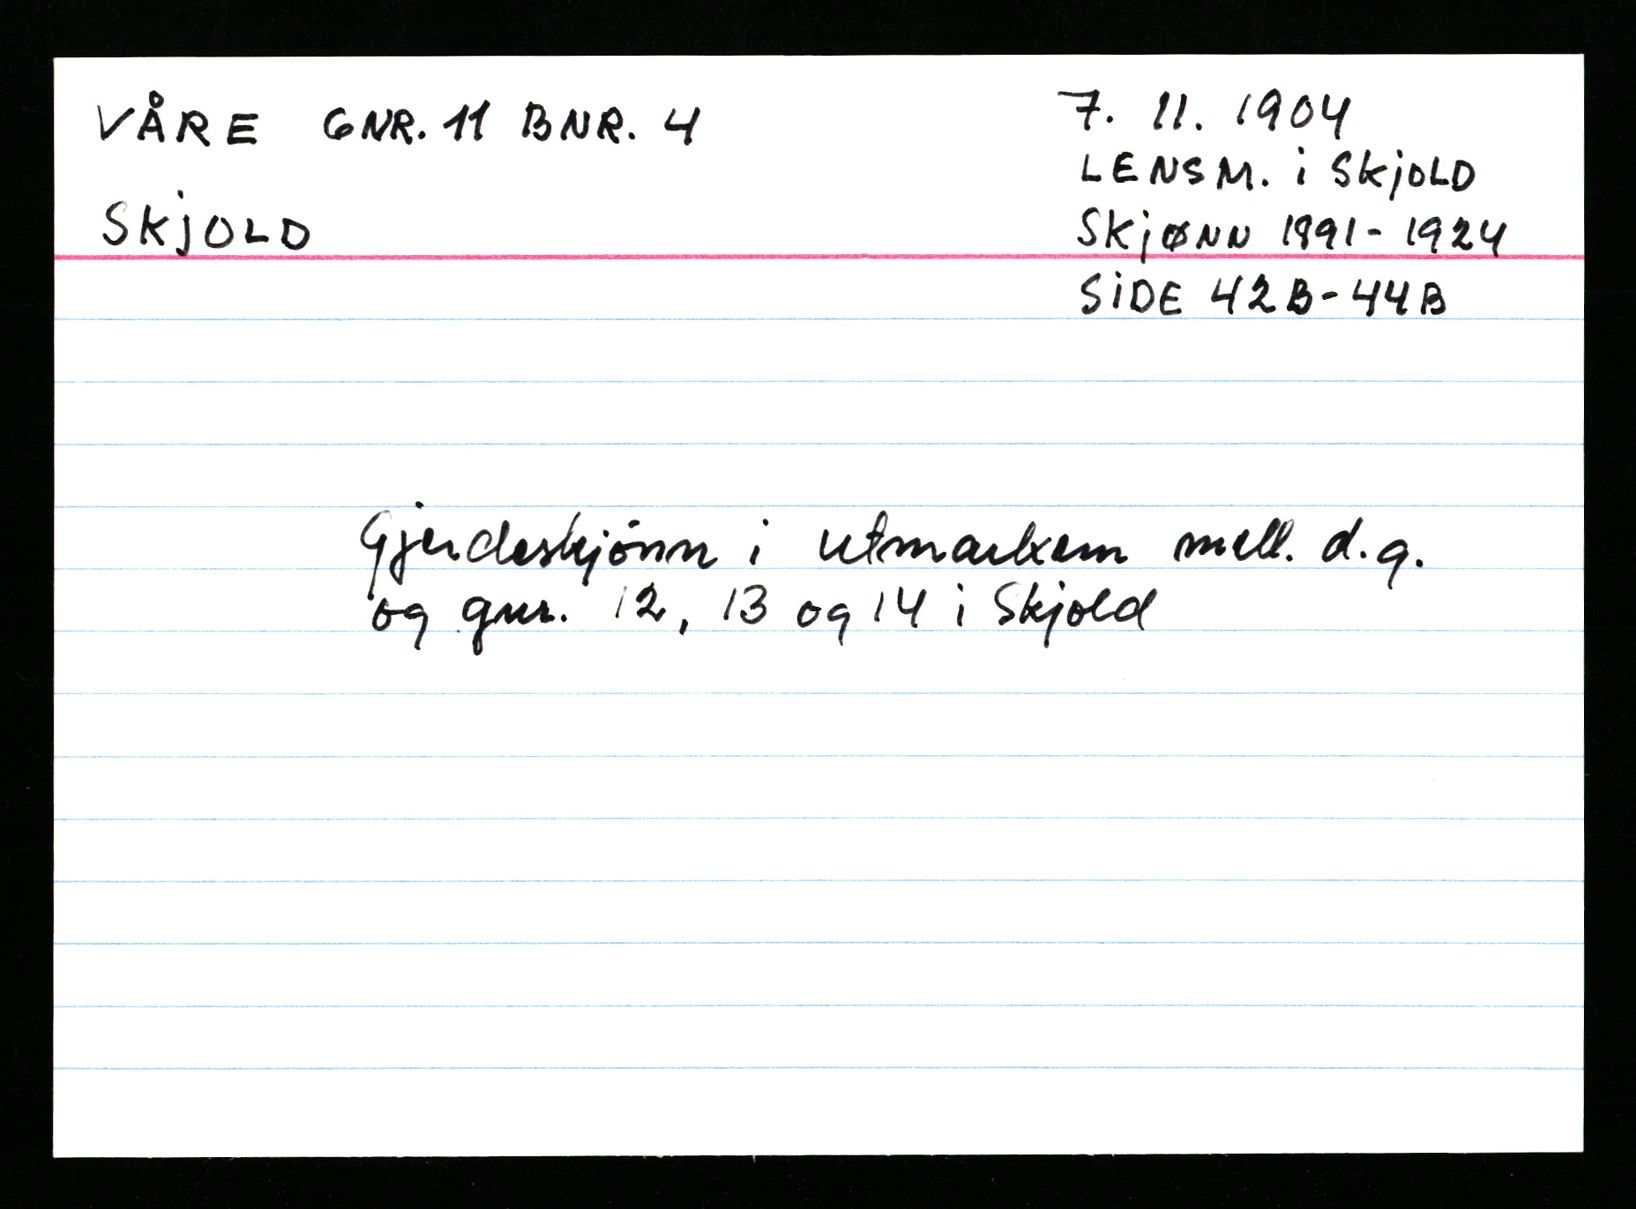 VÅRE GNR. 11 BNR. 4
SKJOLD
7. 11. 1904
LENSM. i SKJOLD
SKJØNN 1891-1924
SIDE 42B-44B
Gjerdeskjønn i utmarken mell. d.g.
og gnr. 12, 13 og 14 i Skjold